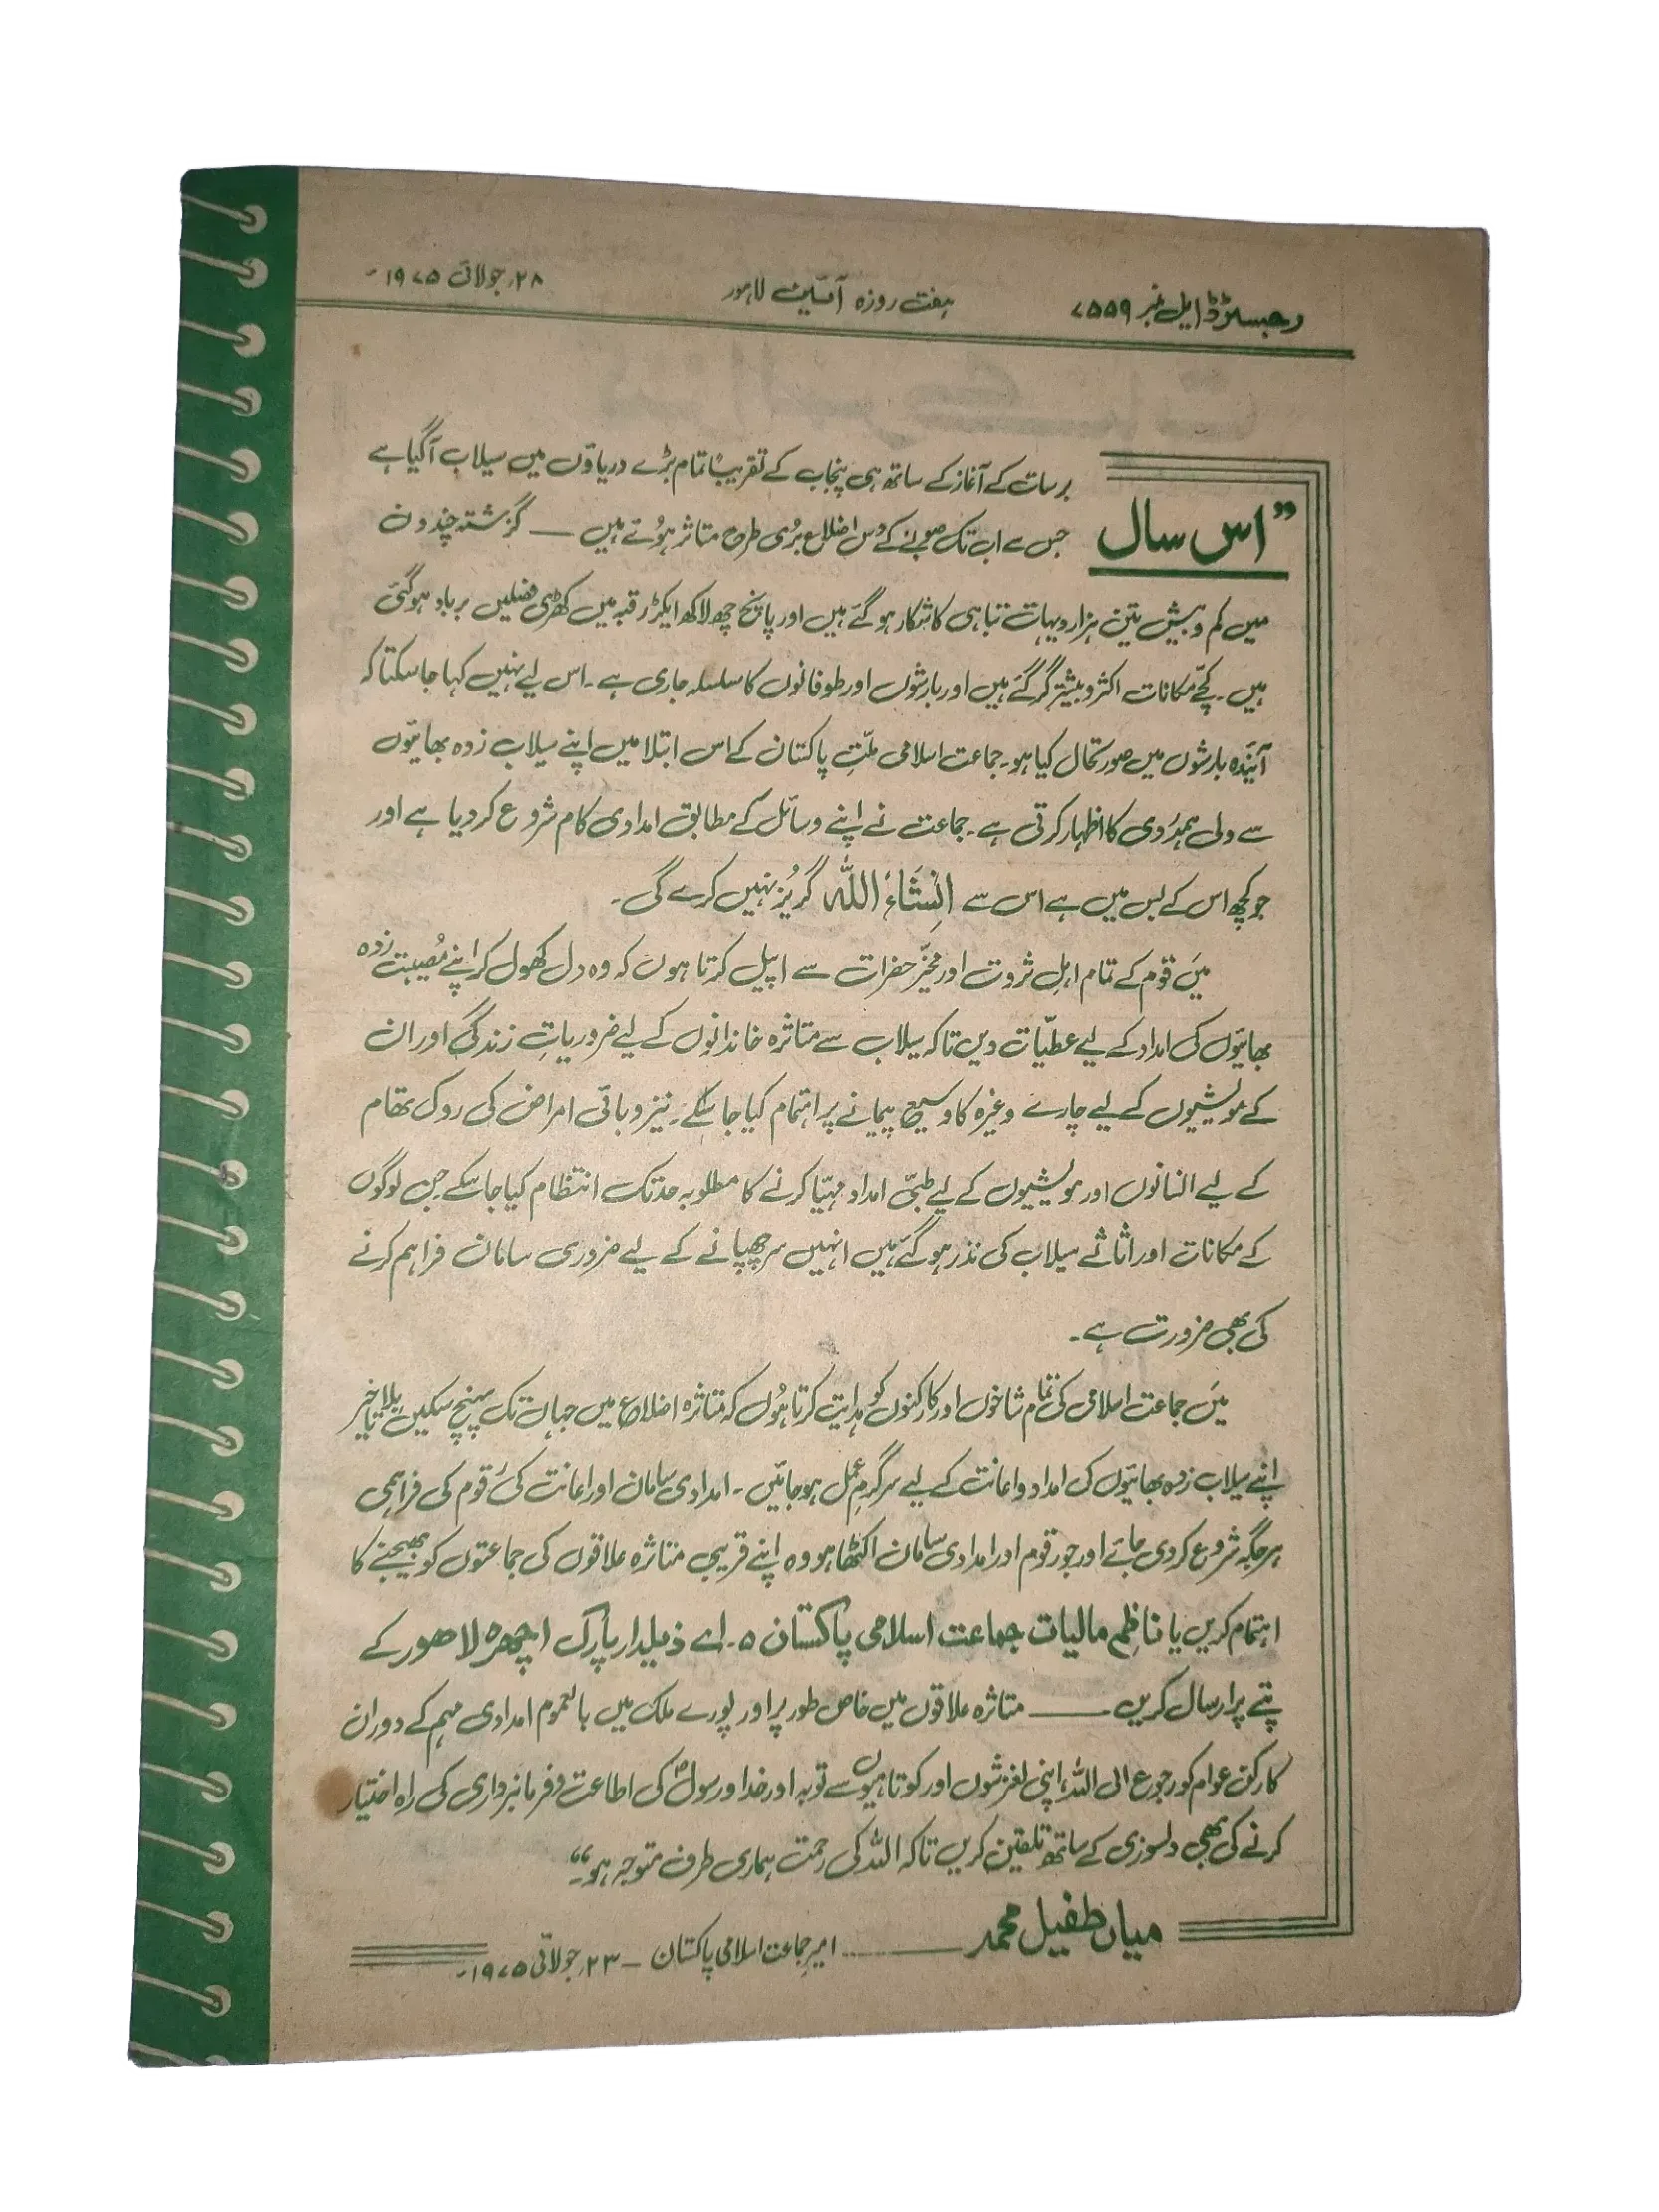 رجسٹرڈ ایل نمبر ۷۵۵۹
ہفت روزہ آئین لاہور
۲۸؍ جولائی ۱۹۷۵ء
"اس سال
برسات کے آغاز کے ساتھ ہی پنجاب کے تقریباً تمام بڑے دریاؤں میں سیلاب آگیا ہے
جس سے اب تک صوبے کے دس اضلاع بُری طرح متاثر ہُوئے ہیں — گزشتہ چند دن
میں کم و بیش تین ہزار دیہات تباہی کا شکار ہو گئے ہیں اور پانچ چھ لاکھ ایکڑ رقبہ میں کھڑی فصلیں برباد ہوگئی
ہیں۔ کچّے مکانات اکثر و بیشتر گر گئے ہیں اور بارشوں اور طوفانوں کا سلسلہ جاری ہے۔ اس لیے نہیں کہا جا سکتا کہ
آئندہ بارشوں میں صورتحال کیا ہو۔ جماعت اسلامی ملّتِ پاکستان کے اس ابتلا میں اپنے سیلاب زدہ بھائیوں
سے دلی ہمدردی کا اظہار کرتی ہے۔ جماعت نے اپنے وسائل کے مطابق امدادی کام شروع کر دیا ہے اور
جو کچھ اس کے بس میں ہے اس سے انشاءاللہ گریز نہیں کرے گی۔
میں قوم کے تمام اہلِ ثروت اور مخیّر حضرات سے اپیل کرتا ہوں کہ وہ دل کھول کر اپنے مُصیبت زدہ
بھائیوں کی امداد کے لیے عطیّات دیں تاکہ سیلاب سے متاثرہ خاندانوں کے لیے ضروریاتِ زندگی اور ان
کے مویشیوں کے لیے چارے وغیرہ کا وسیع پیمانے پر اہتمام کیا جا سکے۔ نیز وبائی امراض کی روک تھام
کے لیے انسانوں اور مویشیوں کے لیے طبّی امداد مہیّا کرنے کا مطلوبہ حد تک انتظام کیا جا سکے جن لوگوں
کے مکانات اور اثاثے سیلاب کی نذر ہو گئے ہیں انہیں سر چھپانے کے لیے ضروری سامان فراہم کرنے
کی بھی ضرورت ہے۔
میں جماعت اسلامی کی تمام شاخوں اور کارکنوں کو ہدایت کرتا ہُوں کہ متاثرہ اضلاع میں جہاں تک پہنچ سکیں بلا تاخیر
اپنے سیلاب زدہ بھائیوں کی امداد و اعانت کے لیے سرگرمِ عمل ہو جائیں۔ امدادی سامان اور اعانت کی رقوم کی فراہمی
ہر جگہ شروع کر دی جائے اور جو رقوم اور امدادی سامان اکٹھا ہو وہ اپنے قریبی متاثرہ علاقوں کی جماعتوں کو بھیجنے کا
اہتمام کریں یا ناظم مالیات جماعت اسلامی پاکستان ۵۔اے ذیلدار پارک اچھرہ لاہور کے
پتے پر ارسال کریں — متاثرہ علاقوں میں خاص طور پر اور پورے ملک میں بالعموم امدادی مہم کے دوران
کارکن عوام کو رجوع الی اللہ، اپنی لغزشوں اور کوتاہیوں سے توبہ اور خدا و رسولؐ کی اطاعت و فرمانبرداری کی راہ اختیار
کرنے کی بھی دلسوزی کے ساتھ تلقین کریں تاکہ اللہ کی رحمت ہماری طرف متوجہ ہو۔"
میاں طفیل محمد — امیر جماعت اسلامی پاکستان – ۲۳؍ جولائی ۱۹۷۵ء